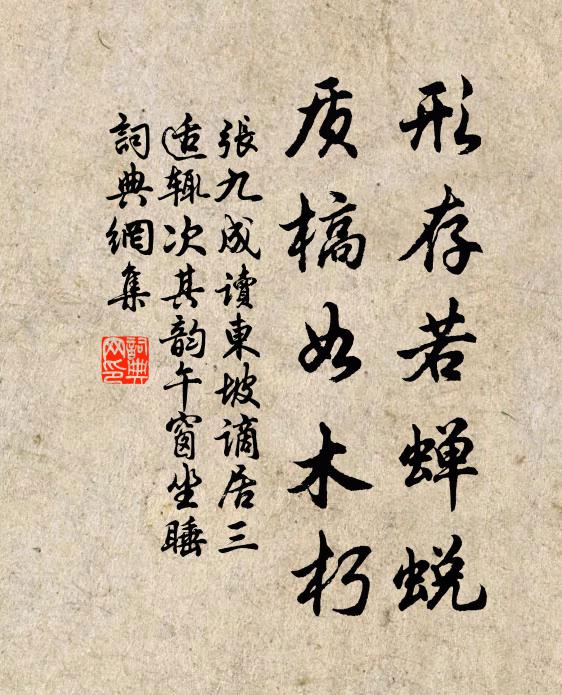 形存若蝉蜕
质槁如木朽
張九成讀東坡謫居三
适辄次其韵午窗坐睡
詞典網集
詞典网印